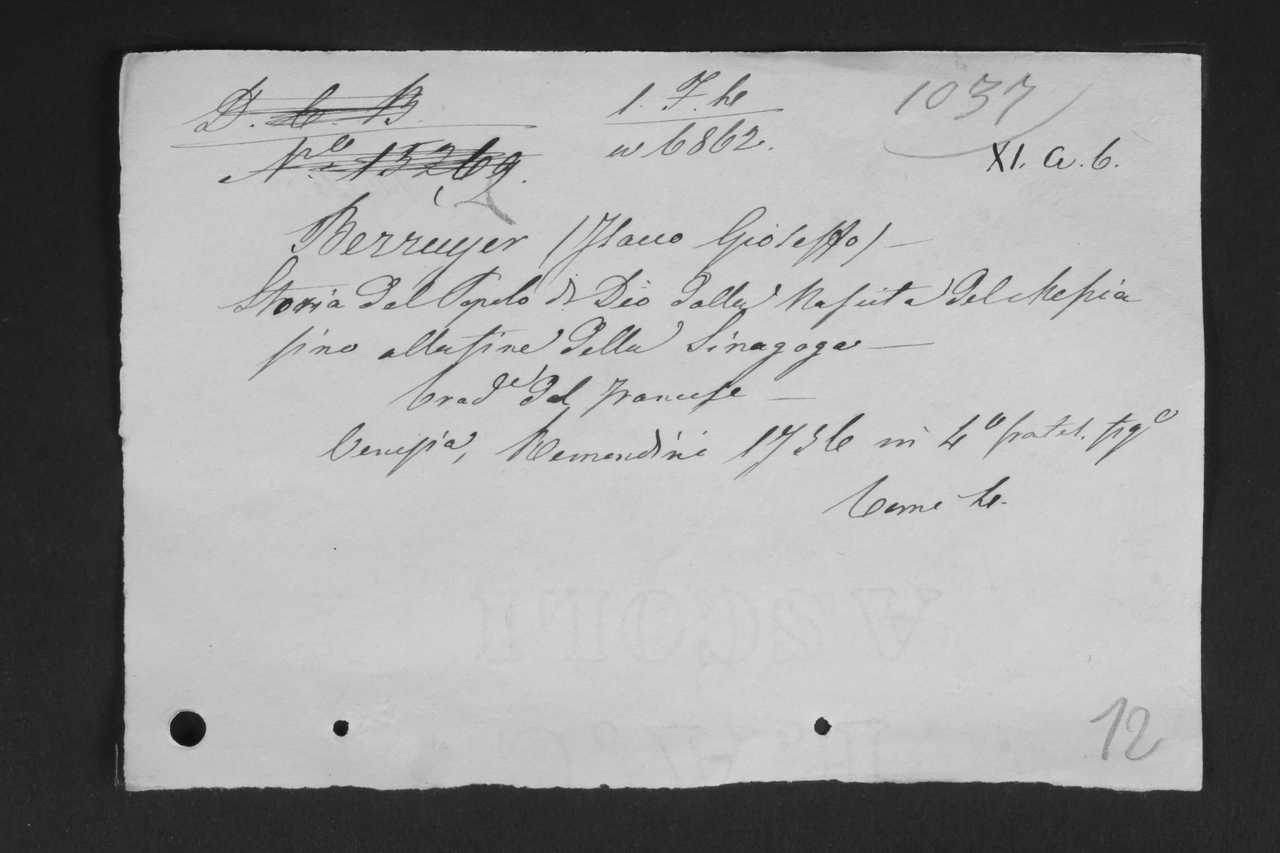 D. C. B.
Nº 15269.
1. F. he
w 6862.
1037
XI. a. 6.
Berruyer (Isacco Gioseffo) —
Storia del Popolo di Dio dalla Nascita del Messia
sino alla fine della Sinagoga —
Trad.e dal Francese —
Venezia, Remondini 1756 in 4º
12